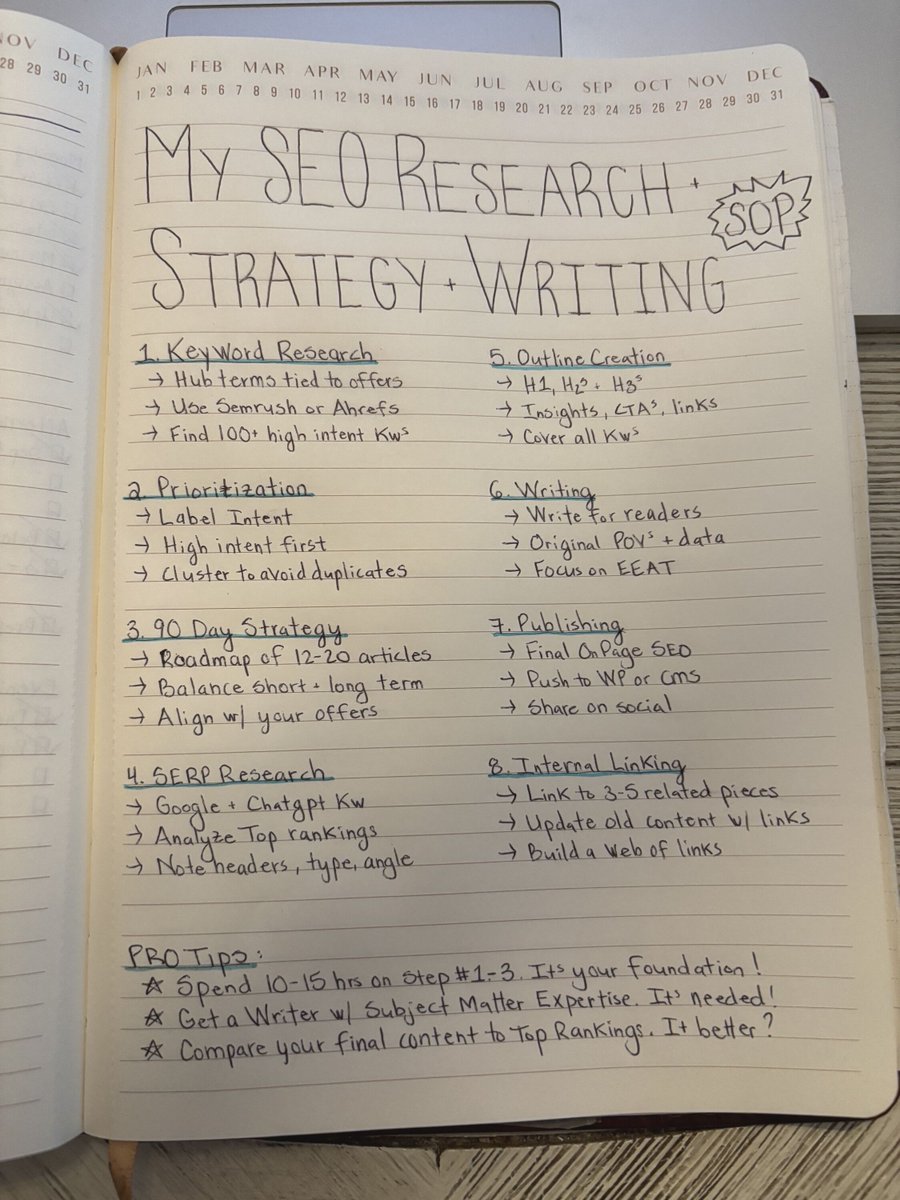 NOV DEC
28 29 30 31
JAN FEB MAR APR MAY JUN JUL AUG SEP OCT NOV DEC
1 2 3 4 5 6 7 8 9 10 11 12 13 14 15 16 17 18 19 20 21 22 23 24 25 26 27 28 29 30 31
MY SEO RESEARCH +
SOP
STRATEGY + WRITING
1. Keyword Research
→ Hub terms tied to offers
→ Use Semrush or Ahrefs
→ Find 100+ high intent Kws
2. Prioritization
→ Label Intent
→ High intent first
→ Cluster to avoid duplicates
3. 90 Day Strategy
→ Roadmap of 12-20 articles
→ Balance short + long term
→ Align w/ your offers
4. SERP Research
→ Google + Chatgpt Kw
→ Analyze Top rankings
→ Note headers, type, angle
5. Outline Creation
→ H1, H2s + H3s
→ Insights, CTAs, links
→ Cover all Kws
6. Writing
→ Write for readers
→ Original POVs + data
→ Focus on EEAT
7. Publishing
→ Final OnPage SEO
→ Push to WP or CMS
→ Share on social
8. Internal Linking
→ Link to 3-5 related pieces
→ Update old content w/ links
→ Build a web of links
PRO Tips:
☆ Spend 10-15 hrs on Step #1-3. Its your foundation!
☆ Get a Writer w/ Subject Matter Expertise. It's needed!
☆ Compare your final content to Top Rankings. It better?